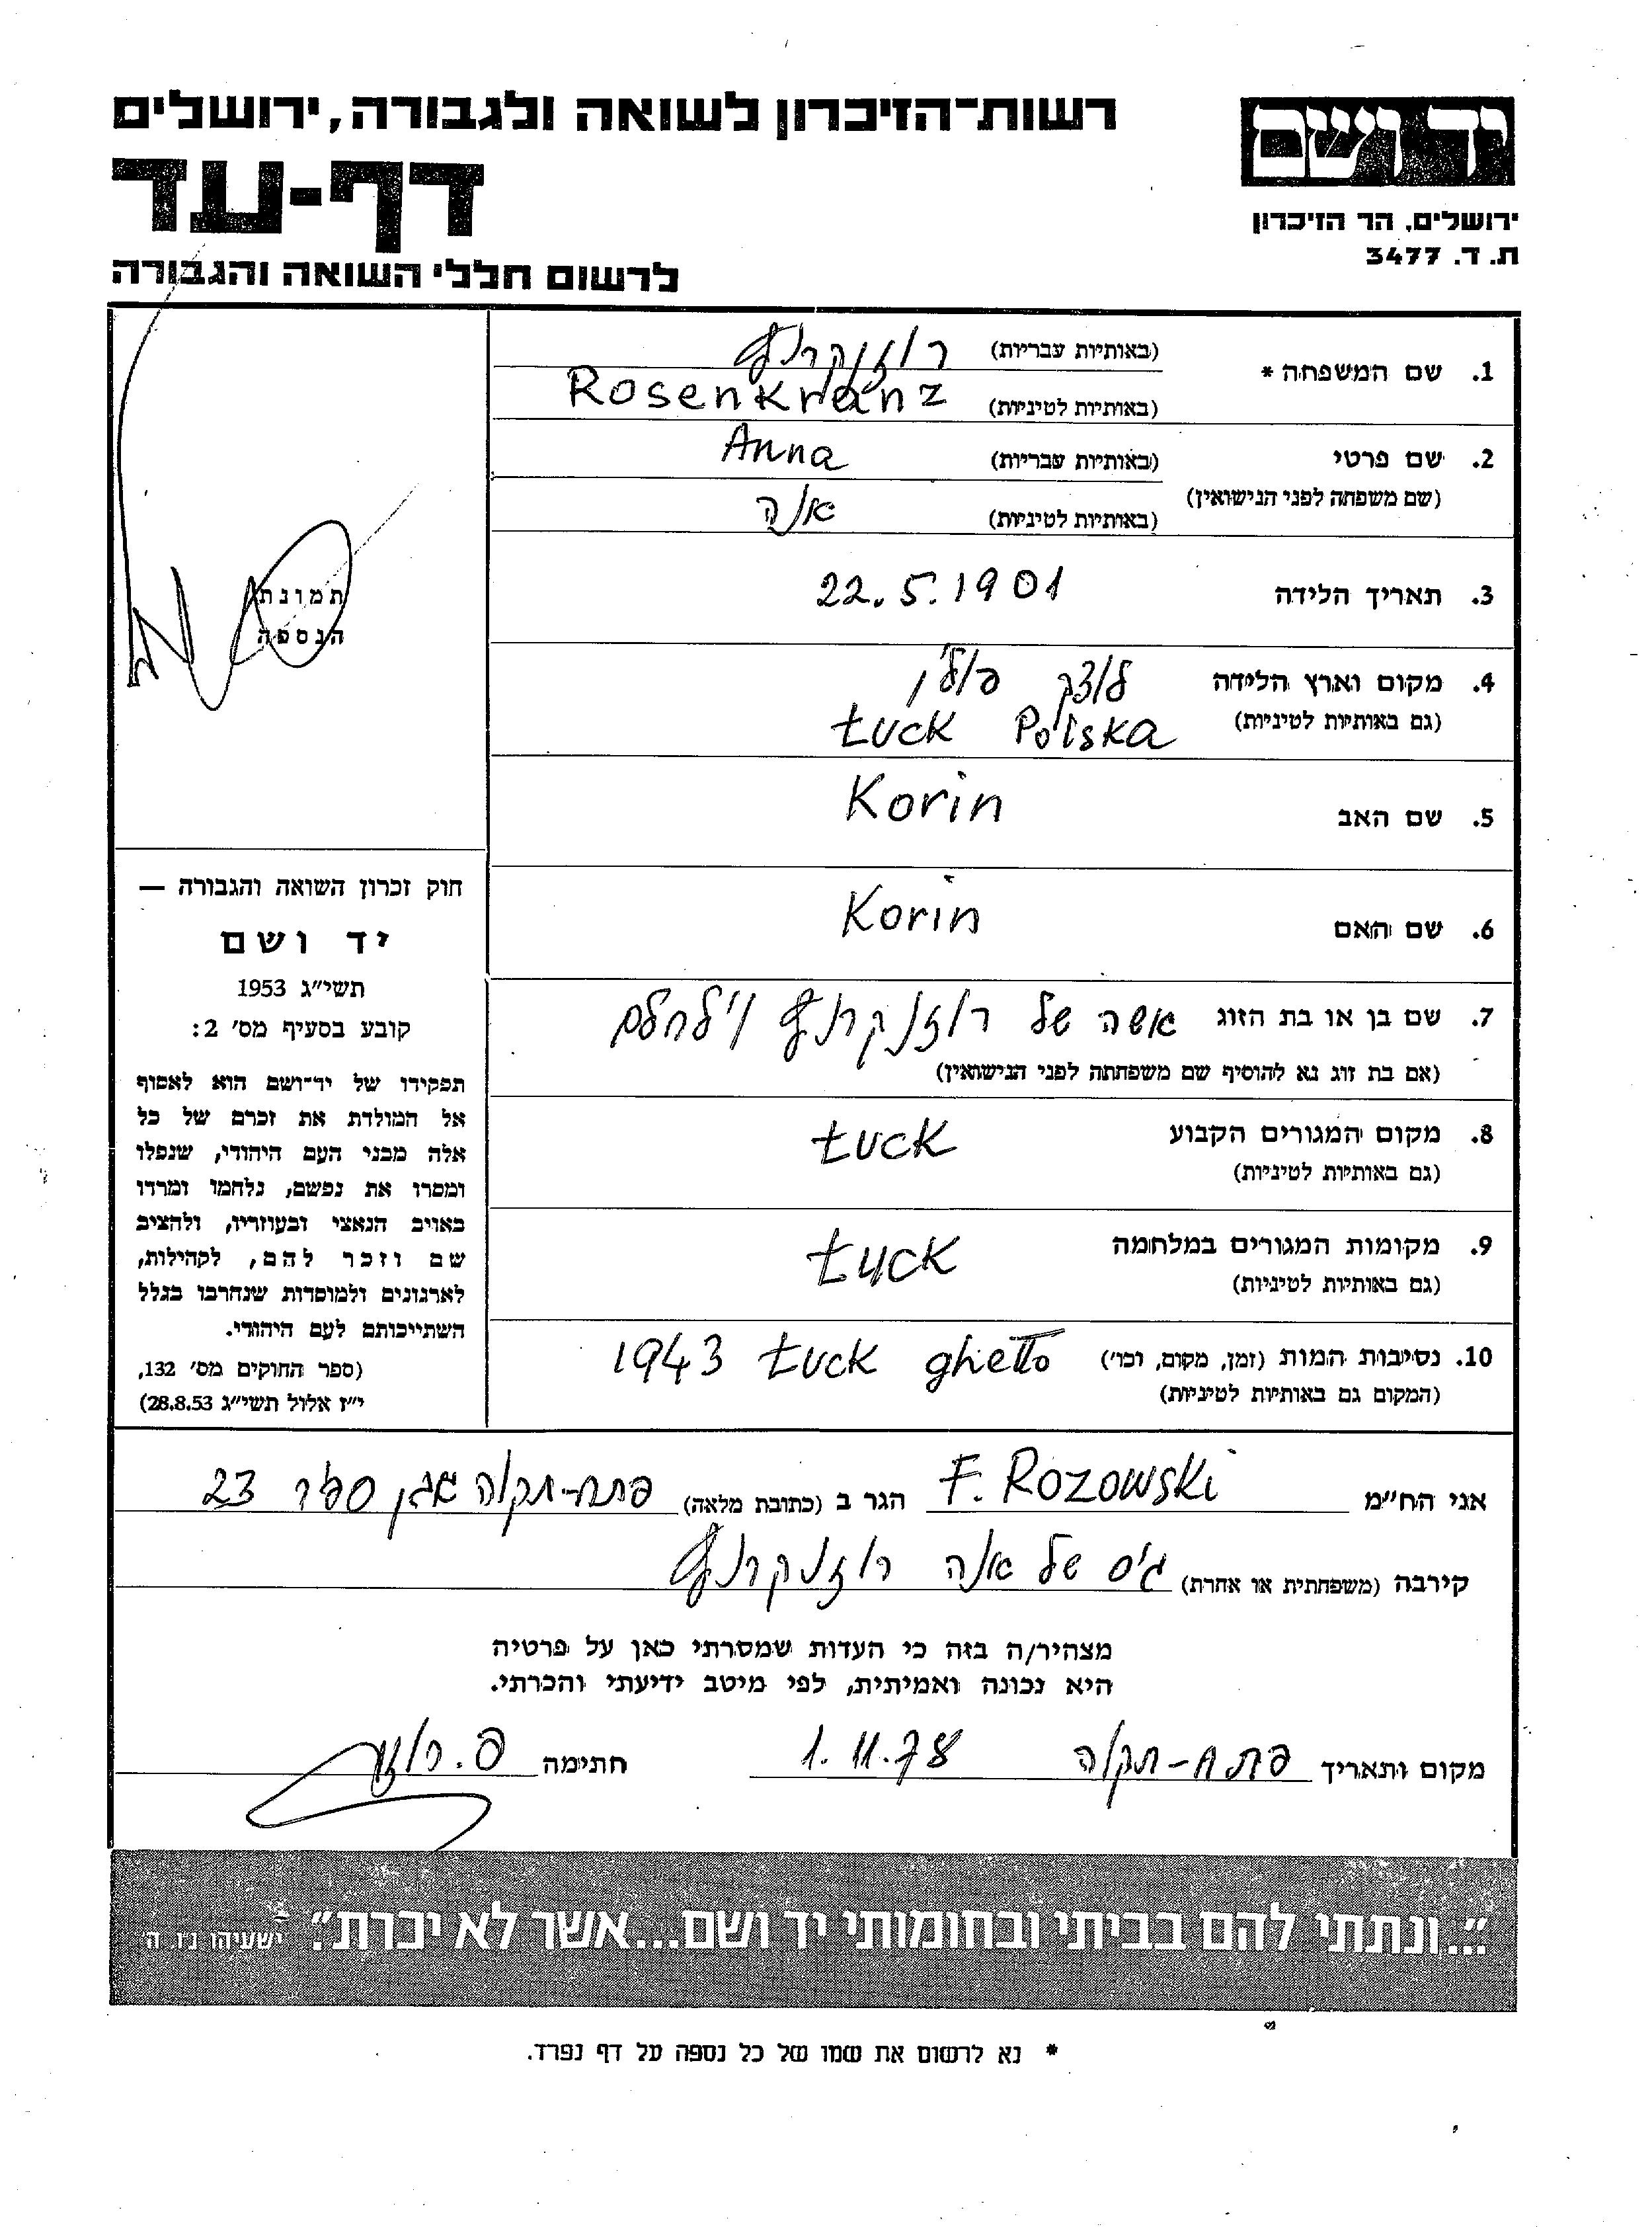 רשות־הזיכרון לשואה ולגבורה, ירושלים
יד ושם
דף-עד
ירושלים, הר הזיכרון
ת. ד. 3477
לרשום חללי השואה והגבורה
1. שם המשפחה * (באותיות עבריות) רוזנקרנץ
(באותיות לטיניות) Rosenkranz
2. שם פרטי (באותיות עבריות) Anna
(שם משפחה לפני הנישואין)
(באותיות לטיניות) אנה
3. תאריך הלידה 22.5.1901
4. מקום וארץ הלידה לוצק פולין
(גם באותיות לטיניות) Łuck Polska
5. שם האב Korin
6. שם האם Korin
7. שם בן או בת הזוג אשה של רוזנקרנץ וילהלם
(אם בת זוג נא להוסיף שם משפחתה לפני הנישואין)
8. מקום המגורים הקבוע Łuck
(גם באותיות לטיניות)
9. מקומות המגורים במלחמה Łuck
(גם באותיות לטיניות)
10. נסיבות המות (זמן, מקום, וכו') 1943 Łuck ghetto
(המקום גם באותיות לטיניות)
תמונת
הנספה
חוק זכרון השואה והגבורה —
יד ושם
תשי"ג 1953
קובע בסעיף מס' 2:
תפקידו של יד־ושם הוא לאסוף
אל המולדת את זכרם של כל
אלה מבני העם היהודי, שנפלו
ומסרו את נפשם, נלחמו ומרדו
באויב הנאצי ובעוזריו, ולהציב
שם וזכר להם, לקהילות,
לארגונים ולמוסדות שנחרבו בגלל
השתייכותם לעם היהודי.
(ספר החוקים מס' 132,
י"ז אלול תשי"ג 28.8.53)
אני הח"מ F. Rozowski הגר ב (כתובת מלאה) פתח-תקוה ספיר 23
קירבה (משפחתית או אחרת) גיס של אנה רוזנקרנץ
מצהיר/ה בזה כי העדות שמסרתי כאן על פרטיה
היא נכונה ואמיתית, לפי מיטב ידיעתי והכרתי.
מקום ותאריך פתח-תקוה 1.11.78 חתימה
"...ונתתי להם בביתי ובחומותי יד ושם...אשר לא יכרת". ישעיהו נ"ו, ה'
* נא לרשום את שמו של כל נספה על דף נפרד.